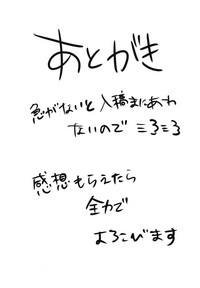 あとがき
急がないと入稿まにあわ
ないので ミ3ミ3
感想もらえたら
全力で
よろこびます